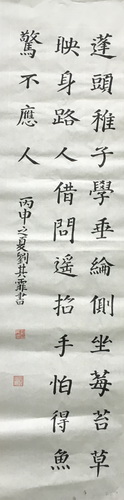 蓬頭稚子學垂綸側坐莓苔草
映身路人借問遥招手怕得魚
驚不應人
丙申之夏劉其霏書